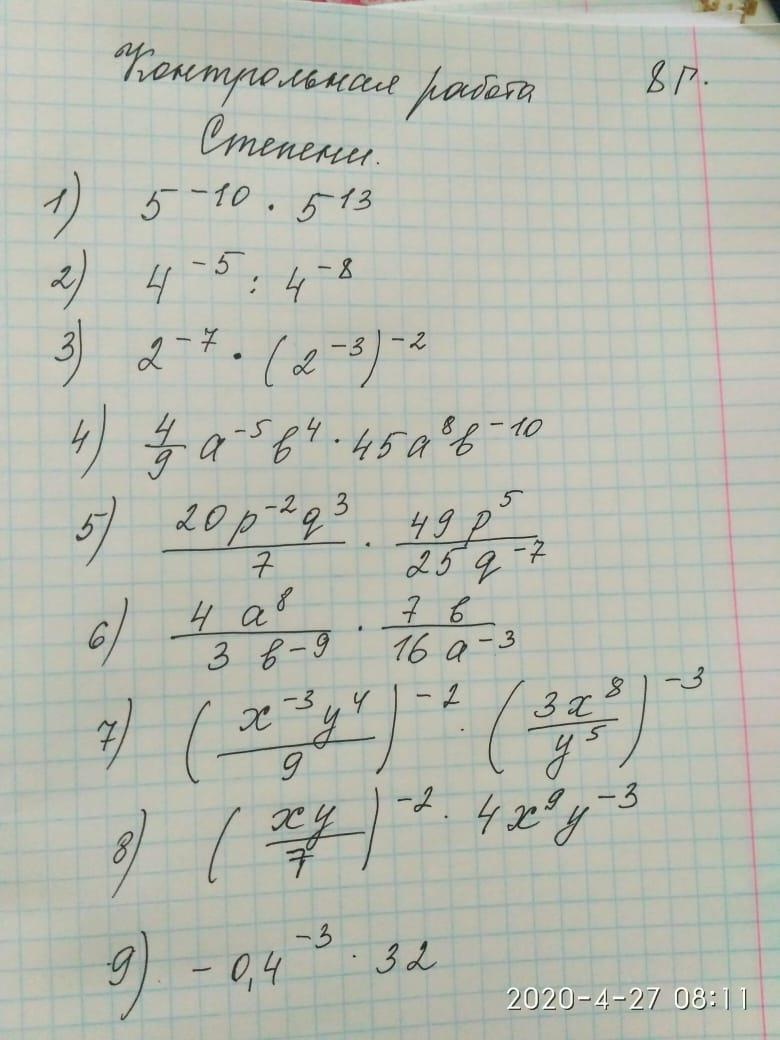 Контрольная работа 8 Г.
Степени.
1) 5^{-10} · 5^{13}
2) 4^{-5} : 4^{-8}
3) 2^{-7} · (2^{-3})^{-2}
4) \frac{4}{9} a^{-5} b^{4} · 45 a^{8} b^{-10}
5) \frac{20 p^{-2} q^{3}}{7} · \frac{49 p^{5}}{25 q^{-7}}
6) \frac{4 a^{8}}{3 b^{-9}} · \frac{7 b}{16 a^{-3}}
7) (\frac{x^{-3} y^{4}}{9})^{-2} · (\frac{3x^{8}}{y^{5}})^{-3}
8) (\frac{xy}{7})^{-2} · 4x^{9}y^{-3}
9) -0,4^{-3} · 32
2020-4-27 08:11